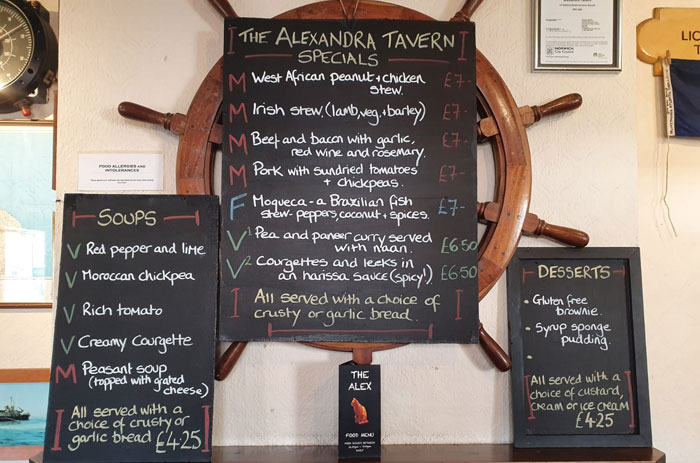 THE ALEXANDRA TAVERN
SPECIALS
M West African peanut + chicken
stew. £7-
M Irish stew, (lamb, veg, + barley) £7-
M Beef and bacon with garlic,
red wine and rosemary. £7-
M Pork with sundried tomatoes
+ chickpeas. £7-
F Moqueca - a Brazilian fish
stew - peppers, coconut + spices. £7-
V1 Pea and paneer curry served
with naan. £6.50
V2 Courgettes and leeks in
an harissa sauce (spicy!) £6.50
All served with a choice of
crusty or garlic bread.
FOOD ALLERGIES AND
INTOLERANCES
SOUPS
V Red pepper and lime
V Moroccan chickpea
V Rich tomato
V Creamy Courgette
M Peasant soup
(topped with grated
cheese)
All served with a
choice of crusty or
garlic bread £4.25
THE
ALEX
FOOD MENU
DESSERTS
• Gluten free
brownie.
• Syrup sponge
pudding.
•
All served with a
choice of custard,
cream or ice cream
£4.25
NORWICH
City Council
LIC
T